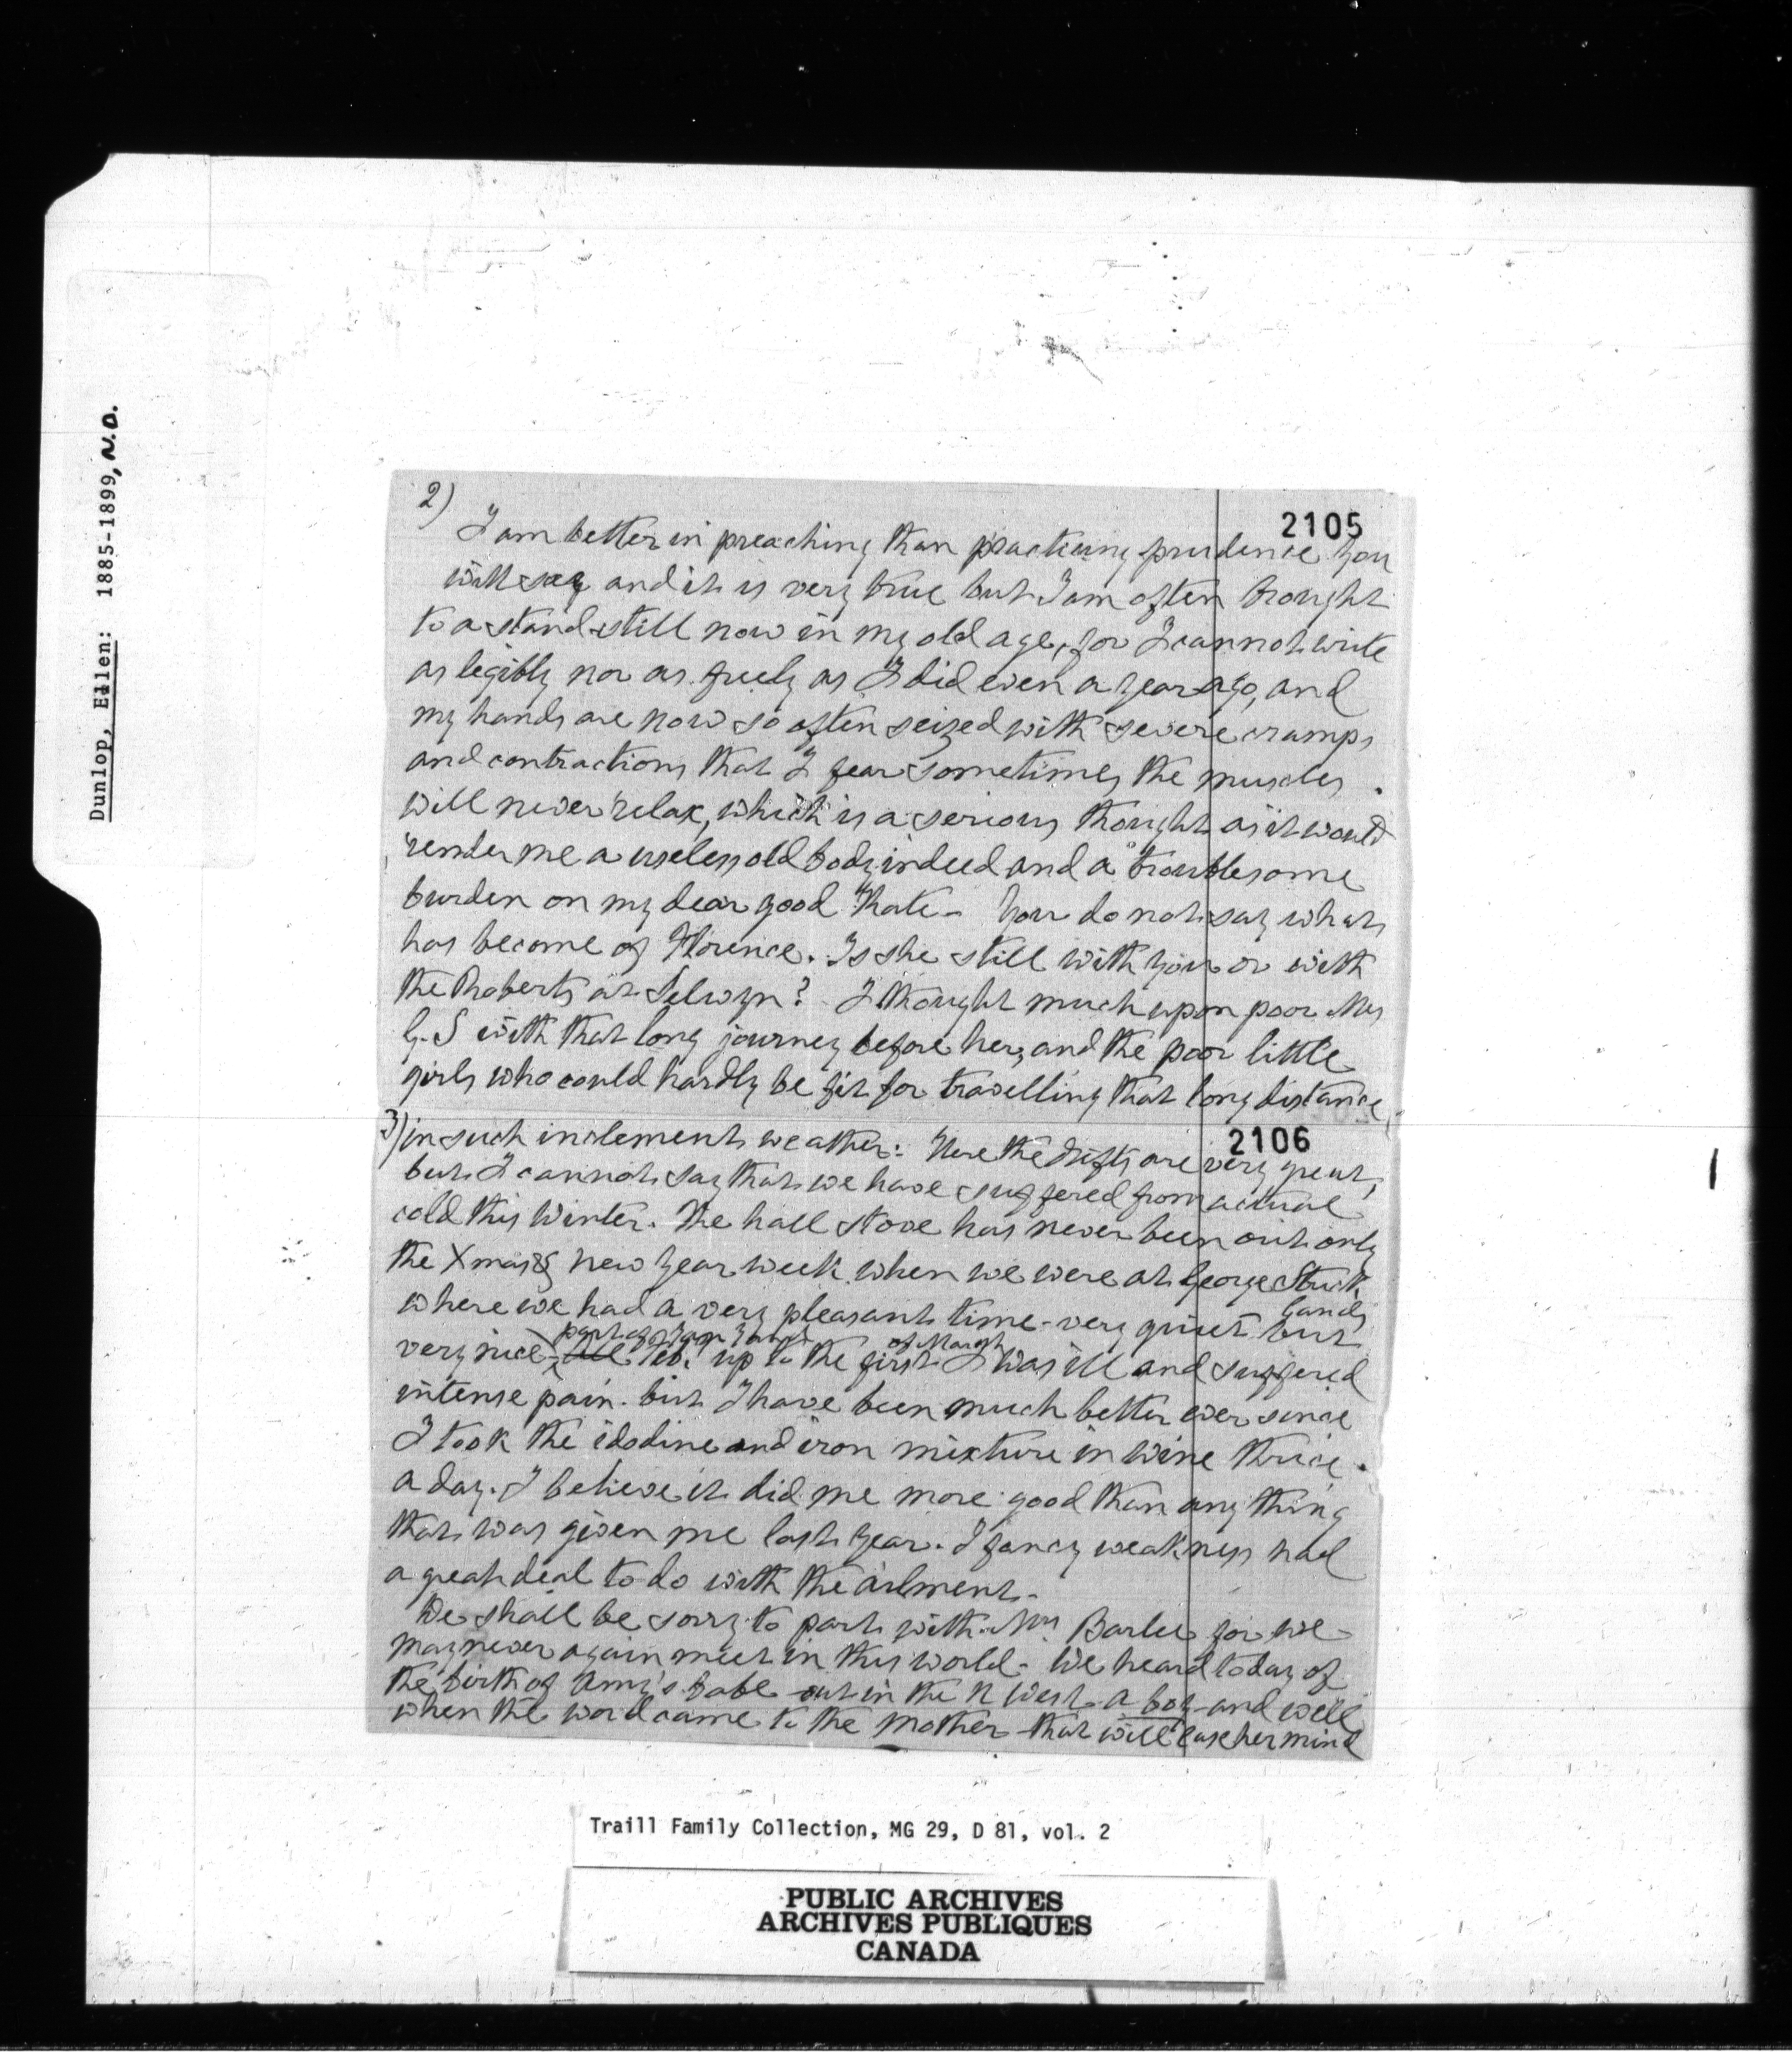 Dunlop, Ellen: 1885-1899, N.D.
2)
2105
I am better in preaching than practising prudence you
will say and it is very true but I am often brought
to a stand-still now in my old age, for I cannot write
as legibly nor as freely as I did even a year ago, and
my hands are now so often seized with severe cramps
and contractions that I fear sometimes the muscles
will never relax, which is a serious thought as it would
render me a useless old body indeed and a troublesome
burden on my dear good Kate - You do not say what
has become of Florence. Is she still with you or with
the Roberts at Selwyn? I thought much upon poor Mrs
G. S with that long journey before her, and the poor little
girls who could hardly be fit for travelling that long distance
3) in such inclement weather: Here the drifts are very great,
2106
but I cannot say that we have suffered from actual
cold this Winter. The hall stove has never been out only
the Xmas & New Year week when we were at George Strick
lands
where we had a very pleasant time - very quiet but
part of Jan &
of March
very nice - all Feb. up to the first I was ill and suffered
intense pain. but I have been much better ever since
I took the idodine and iron mixture in wine thrice
a day. I believe it did me more good than any thing
that was given me last year. I fancy weakness had
a great deal to do with the ailment -
We shall be sorry to part with Mrs Barlee for we
may never again meet in this world - We heard today of
the birth of Amy's babe out in the N West a boy - and well
when the word came to the mother that will ease her mind
Traill Family Collection, MG 29, D 81, vol. 2
PUBLIC ARCHIVES
ARCHIVES PUBLIQUES
CANADA